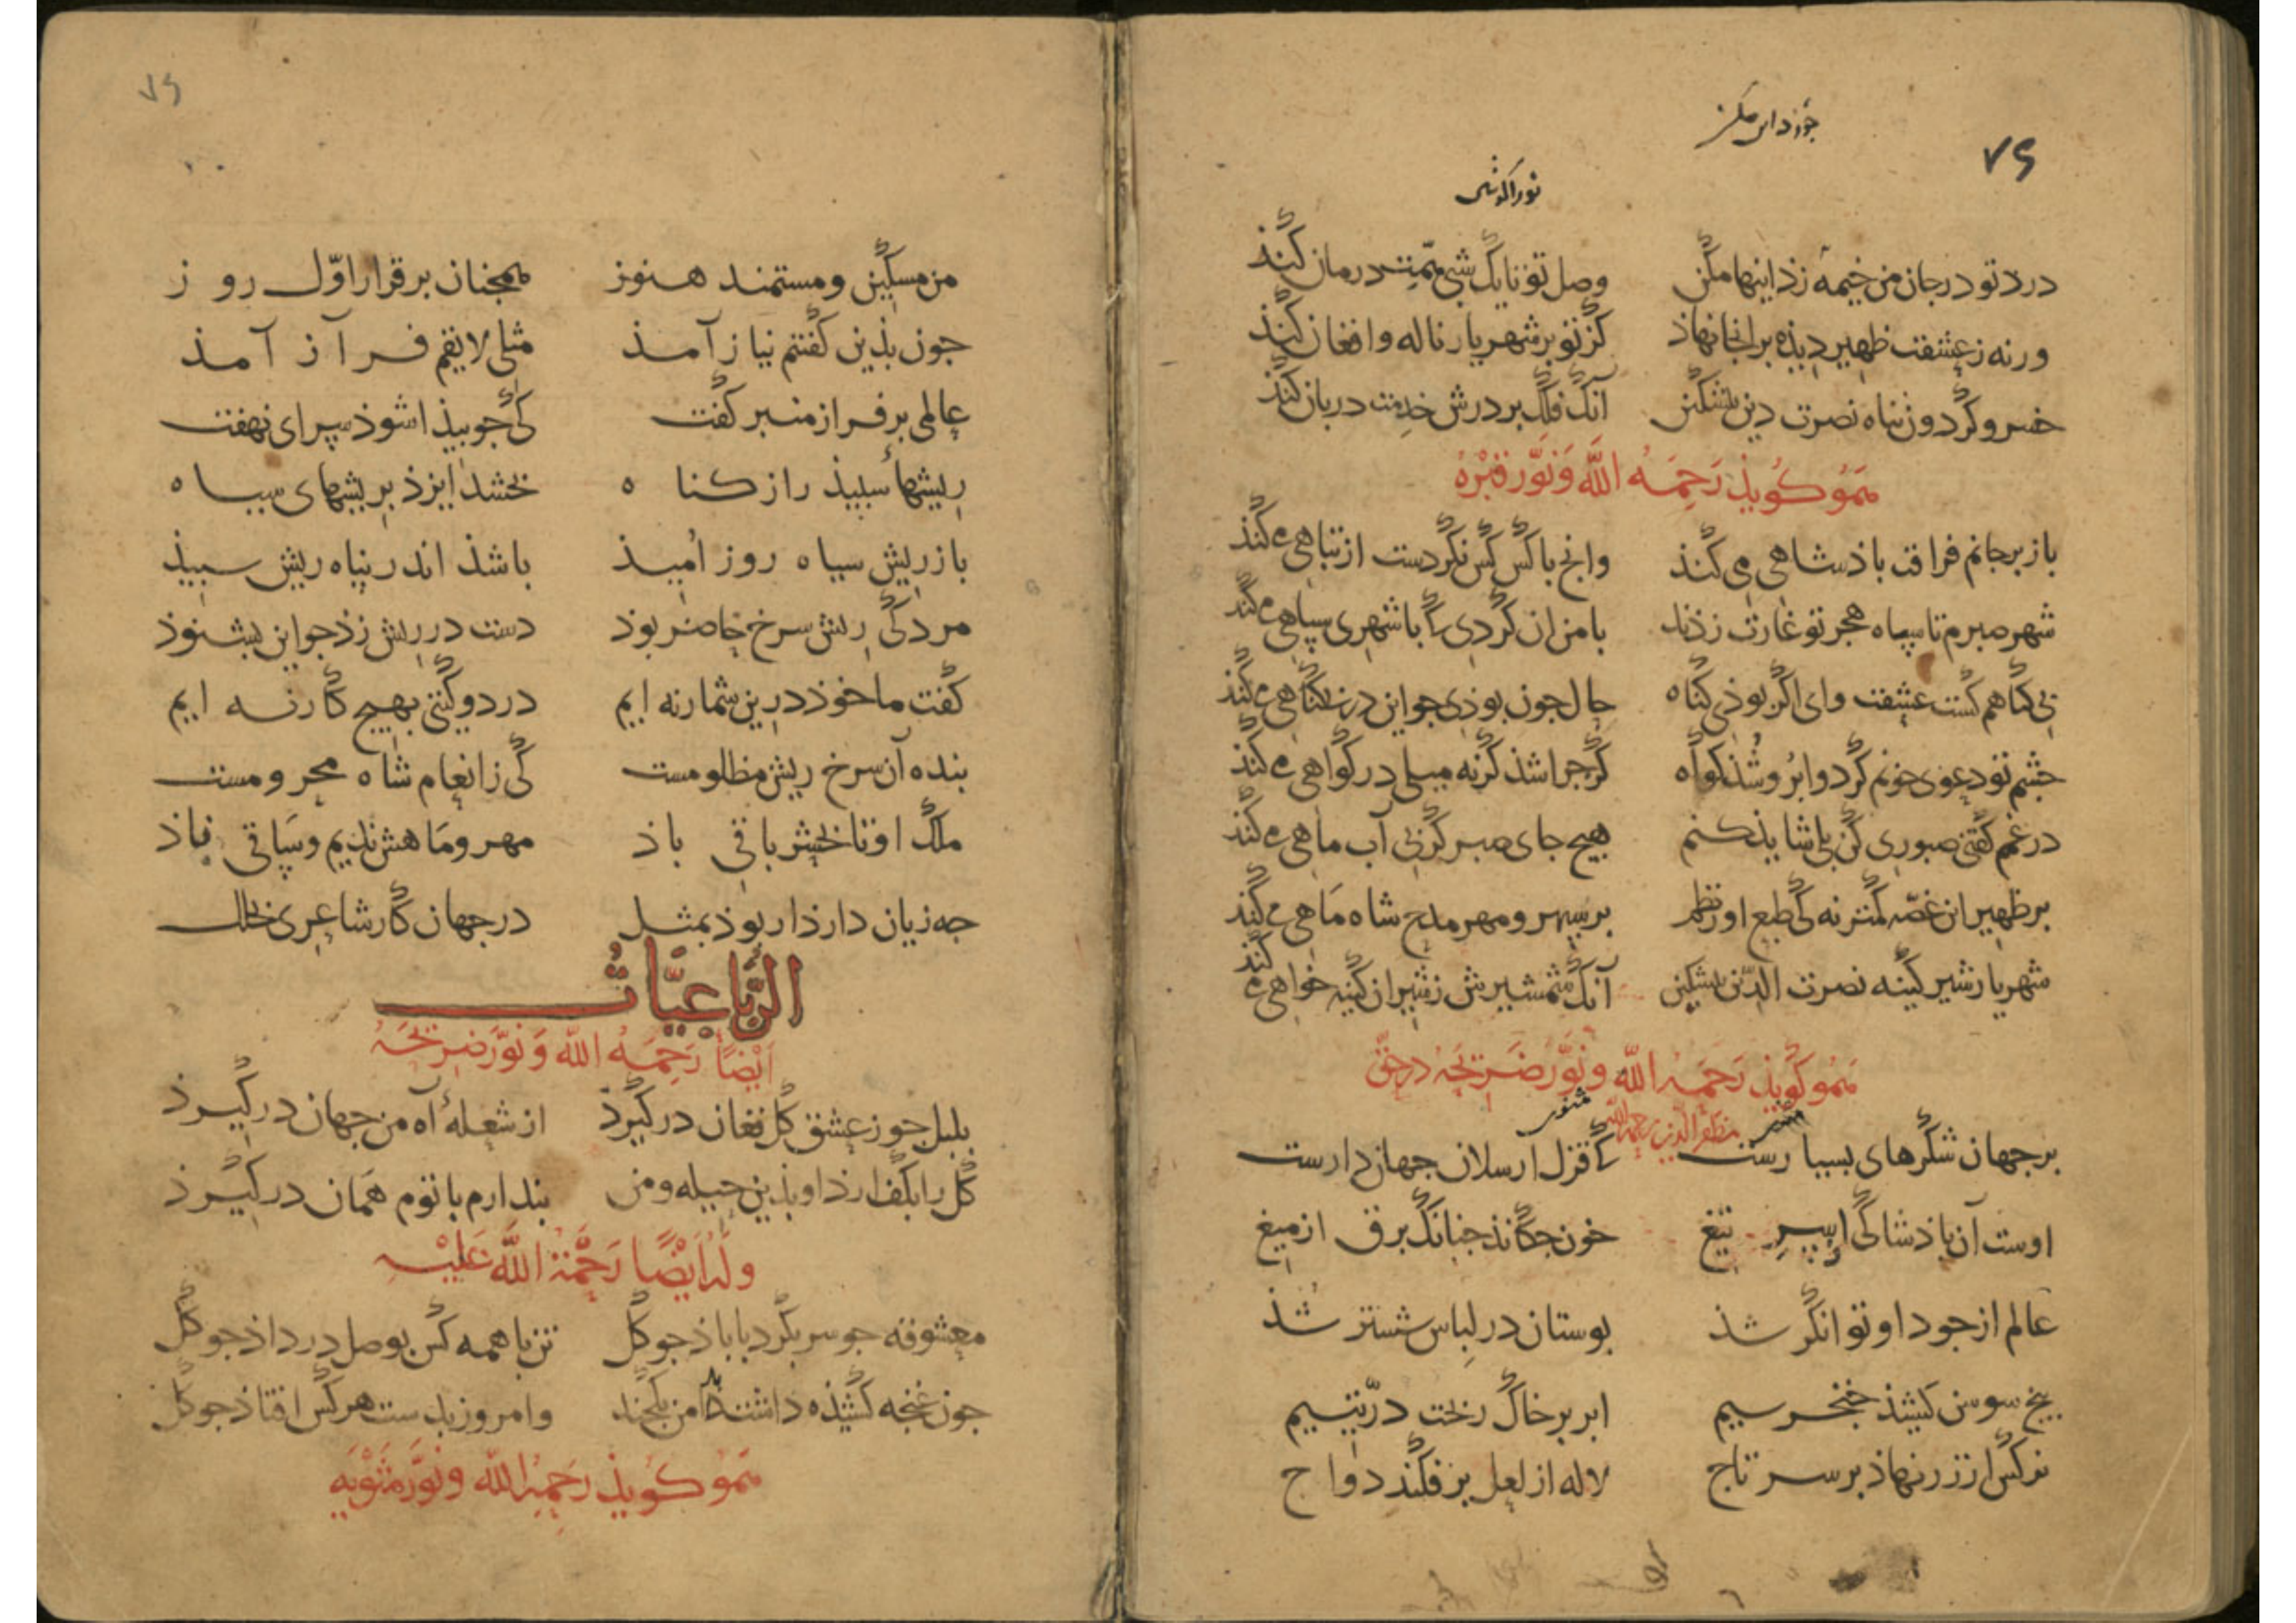 ۷۶
درد تو در جان من خیمه زد اینها مکن وصل تو نایک شبی همت درمان کند
ورنه ز عشقت ظهیر دیذه بر انجا نهاذ کز تو بر شهریار ناله و افغان کند
خسرو گردون پناه نصرت دین بیشکین آنک فلک بر درش خدمت دربان کند
هم او کوید رحمه الله و نور قبره
باز بر جانم فراقت باذشاهی می کند وانج با کس کس نکردست از تباهی می کند
شهر صبرم تا سپاه هجر تو غارت زذند با من ان کردی که با شهری سپاهی می کند
بی کناهم کشت عشقت وای اکر بوذی کناه حال جون بوذی جو این در بی کناهی می کند
جشم تو دعوی خونم کرد و ابرو شذ کواه کژ جرا شذ کرنه میلی در کواهی می کند
در غم کفتی صبوری کن بلی شایذ کنم هیج جای صبر کر بی آب ماهی می کند
بر ظهیر این غصه کمتر نه کی طبع او ز نظم بر سپهر و مهر مدح شاه ماهی می کند
شهریار شیر کینه نصرت الدین بیشکین آنک شمشیرش ز شیران کینه خواهی می کند
هم او کوید رحمه الله و نور ضریحه در حق
مظفر الدین رحمه الله
بر جهان شکرهای بسیارست که قزل ارسلان جهاندارست
اوست آن باذشا کی ابر تیغ خون جکانذ جنانک برق از میغ
عالم از جود او توانکر شذ بوستان در لباس ششتر شذ
بیخ سوسن کشید خنجر سیم ابر بر خاک ریخت در یتیم
نرکس از زر نهاذ بر سر تاج لاله از لعل بر فکند دواج
۷۶
من مسکین و مستمند هنوز همجنان بر قرار اول روز
جون بذین کفتم نیاز آمذ مثلی لایقم فراز آمذ
عالمی بر فراز منبر کفت کی جو بیذا شوذ سرای نهفت
ریشهاء سبیذ را ز کناه بخشد ایزذ بریشهای سیاه
باز ریش سیاه روز امیذ باشذ اندر پناه ریش سبیذ
مردکی ریش سرخ حاضر بوذ دست در ریش زذ جو این بشنوذ
کفت ما خوذ درین شمار نه ایم در دو کیتی بهیج کار نه ایم
بنده آن سرخ ریش مظلومست کی ز انعام شاه محرومست
ملک او تا بحشر باقی باذ مهر و ماهش ندیم و ساقی باذ
جه زیان دارذ ار بوذ بمثل در جهان کار شاعری بخلل
الرباعیات
ایضا رحمه الله و نور ضریحه
بلبل جو ز عشق کل فغان در کیرذ از شعلهٔ آه من جهان در کیرذ
کل را بکف ارذ او بذین حیله و من بندارم با توم همان در کیرذ
وله ایضا رحمة الله علیه
معشوقه جو سر بکرد با باذ جو کل تن با همه کس بوصل در داذ جو کل
جون غنجه کشیذه داشت دامن یکجند وامروز بدست هر کس افتاذ جو کل
هم او کوید رحمه الله و نور مثویه